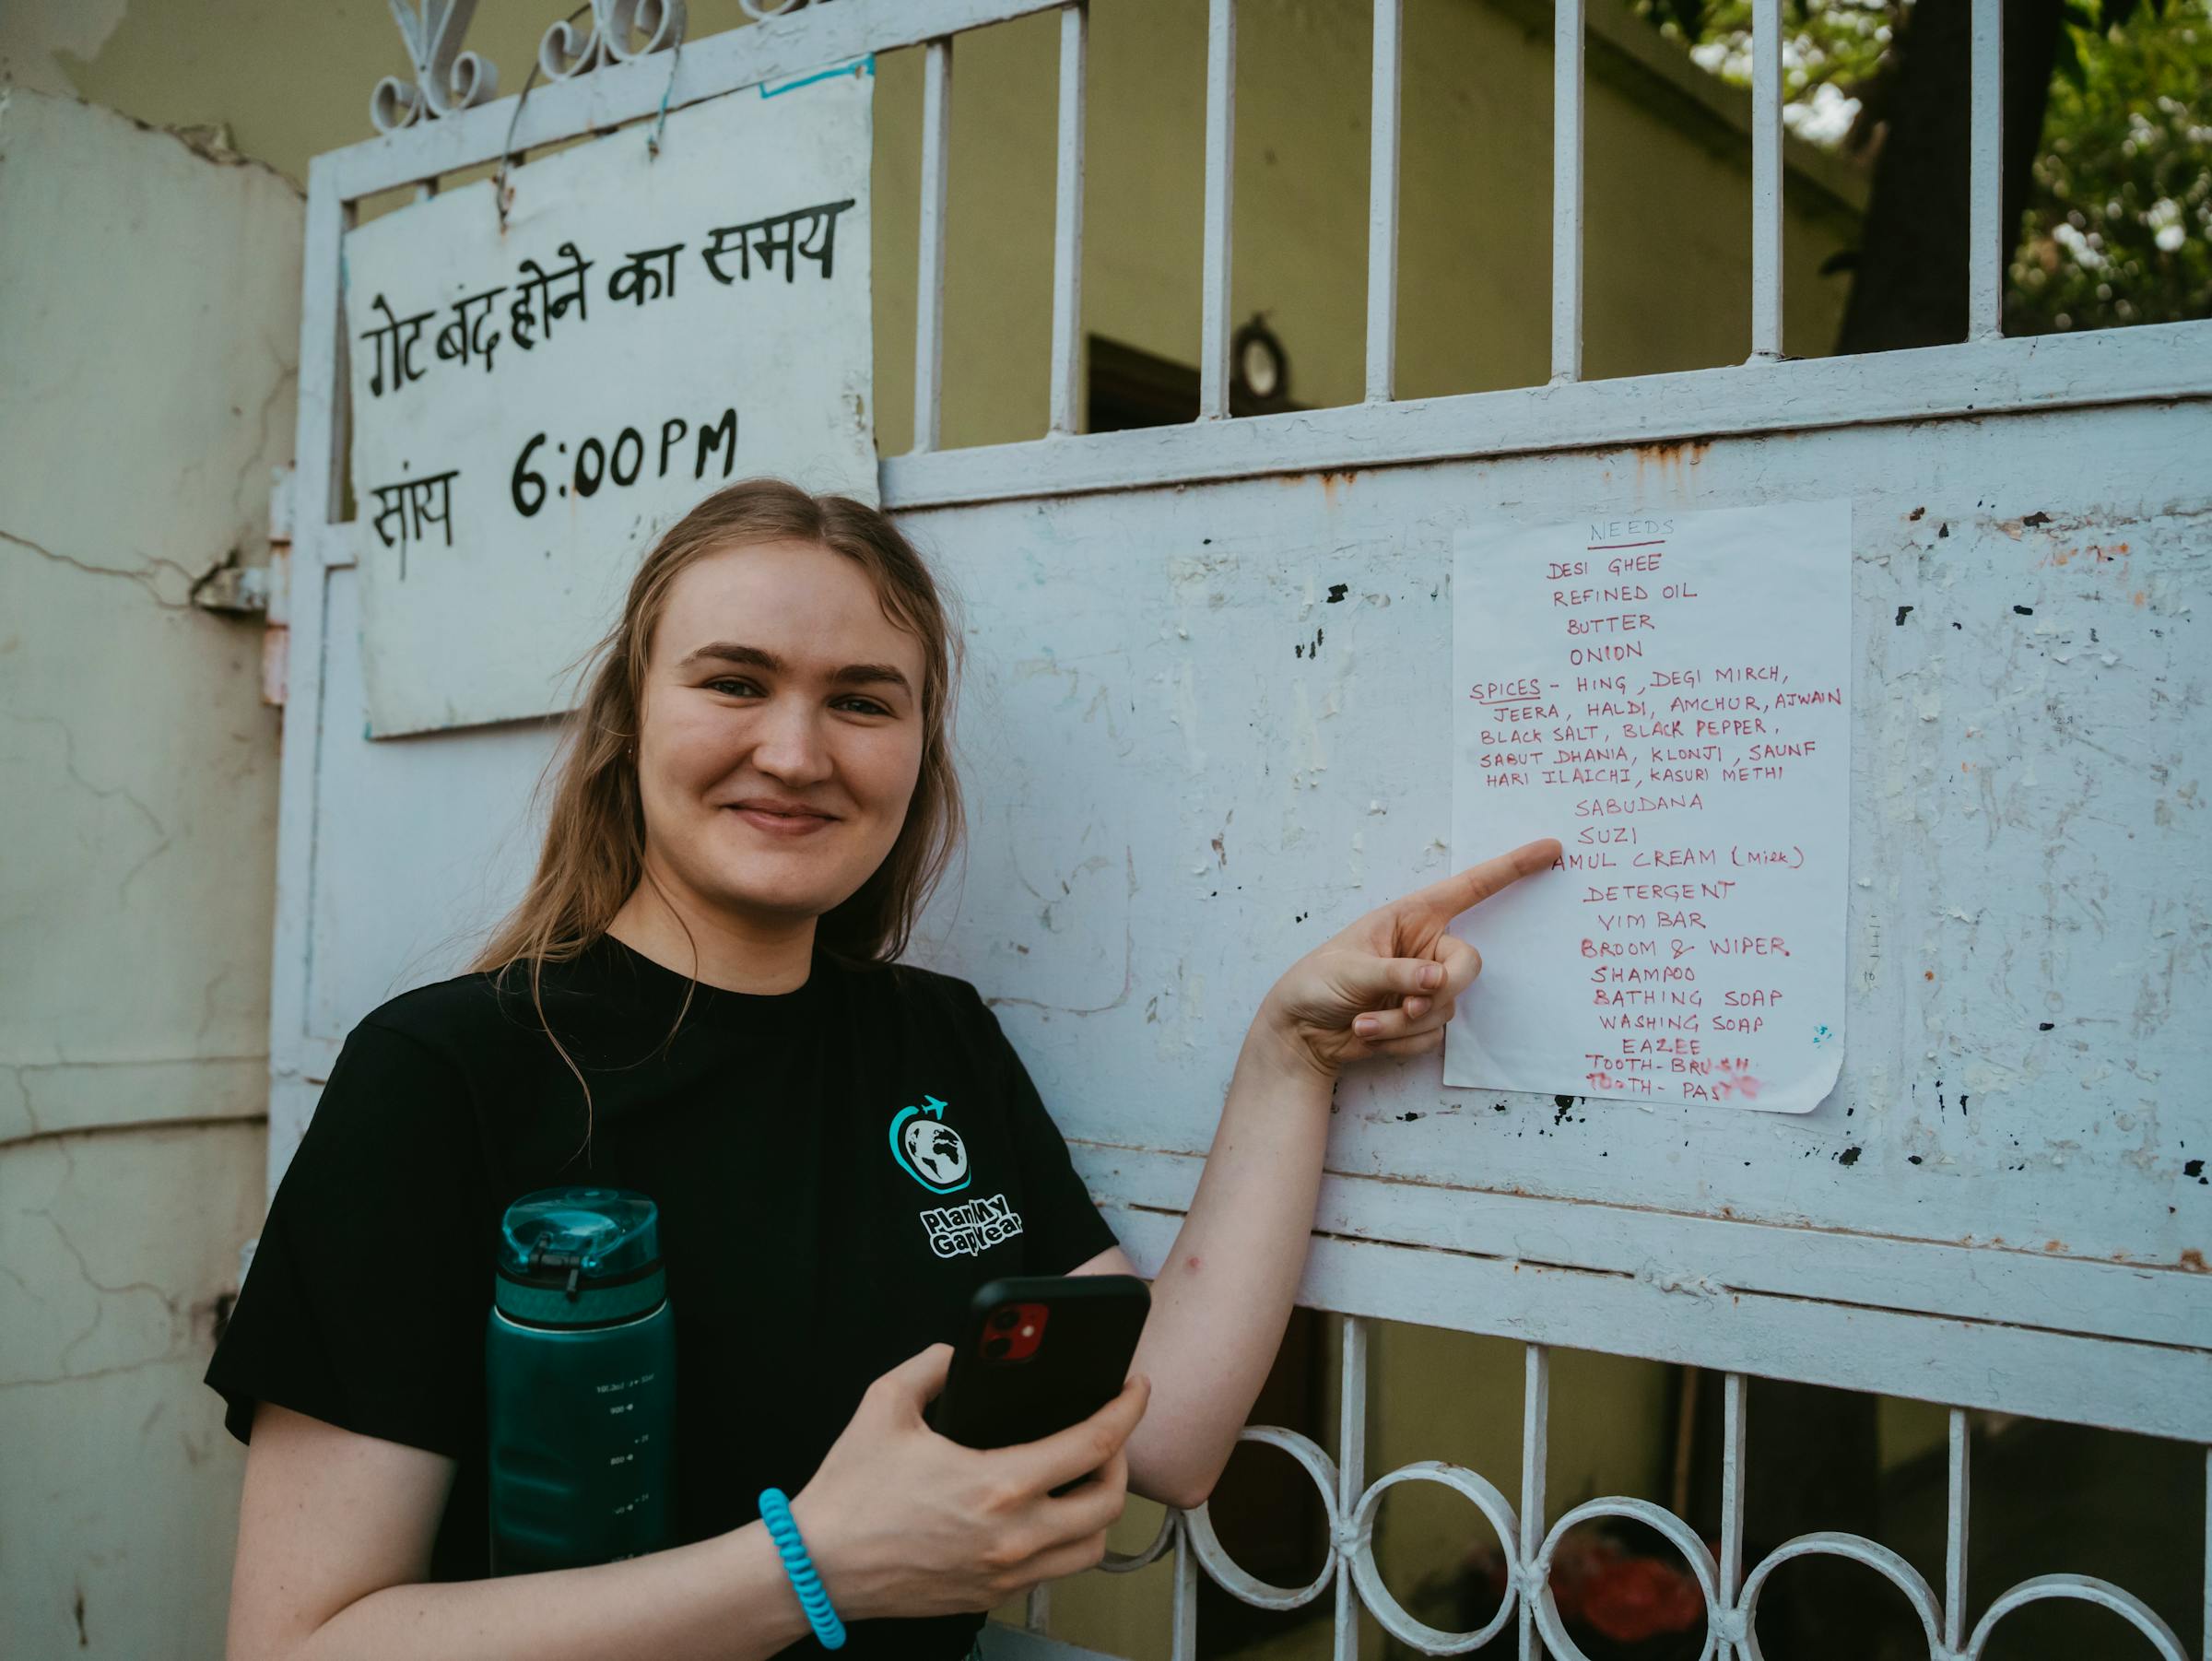 गेट बंद होने का समय
सांय 6:00 PM
NEEDS
DESI GHEE
REFINED OIL
BUTTER
ONION
SPICES - HING, DEGI MIRCH,
JEERA, HALDI, AMCHUR, AJWAIN
BLACK SALT, BLACK PEPPER,
SABUT DHANIA, KLONJI, SAUNF
HARI ILAICHI, KASURI METHI
SABUDANA
SUZI
AMUL CREAM (Milk)
DETERGENT
VIM BAR
BROOM & WIPER
SHAMPOO
BATHING SOAP
WASHING SOAP
EAZEE
TOOTH-BRUSH
TOOTH-PASTE
Plan My
Gap Year
900
800